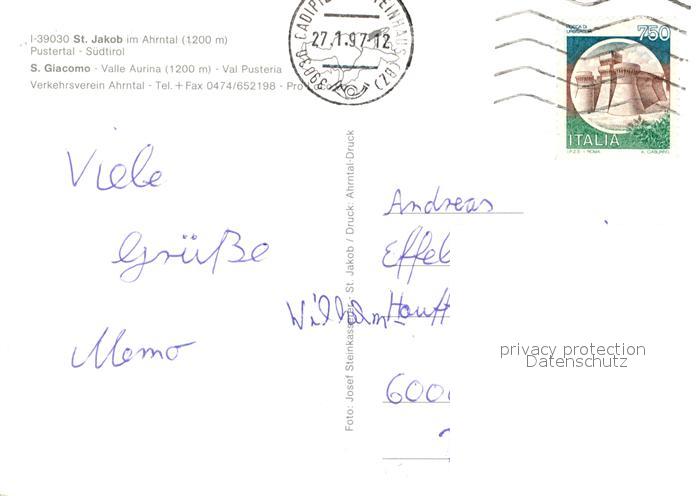 I-39030 St. Jakob im Ahrntal (1200 m)
Pustertal · Südtirol
S. Giacomo · Valle Aurina (1200 m) · Val Pusteria
Verkehrsverein Ahrntal · Tel. + Fax 0474/652198 · Pro
27.1.97-12
39030 CADIPIE STEINHAUS (BZ)
ROCCA DI URBISAGLIA
750
ITALIA
I.P.Z.S. - ROMA
Viele
Grüße
Memo
Foto: Josef Steinkasserer, St. Jakob / Druck: Ahrntal-Druck
Andreas
Effel
Wilhelm-
Hauff
600
privacy protection
Datenschutz